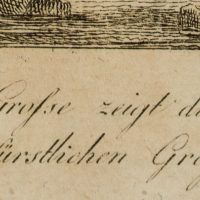 Große zeigt d
ürstlichen Gro